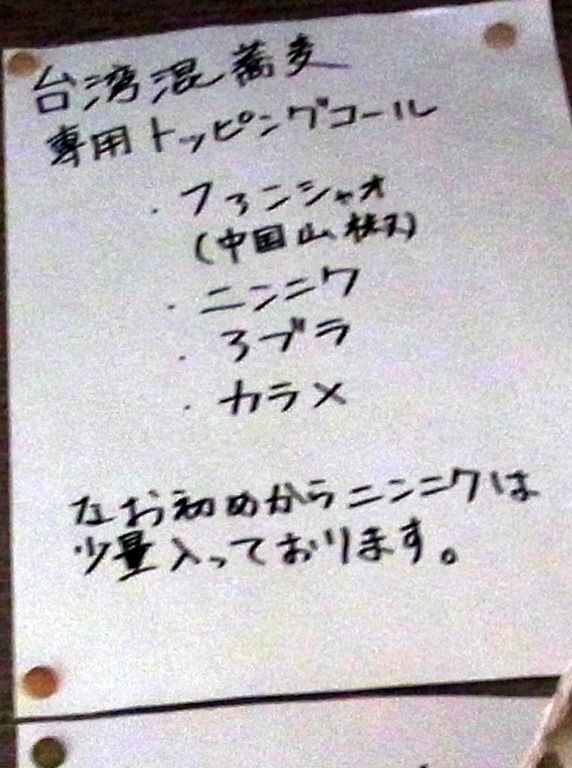 台湾混蕎麦
専用トッピングコール
・ファンシャオ
(中国山椒)
・ニンニク
・アブラ
・カラメ
なお初めからニンニクは
少量入っております。